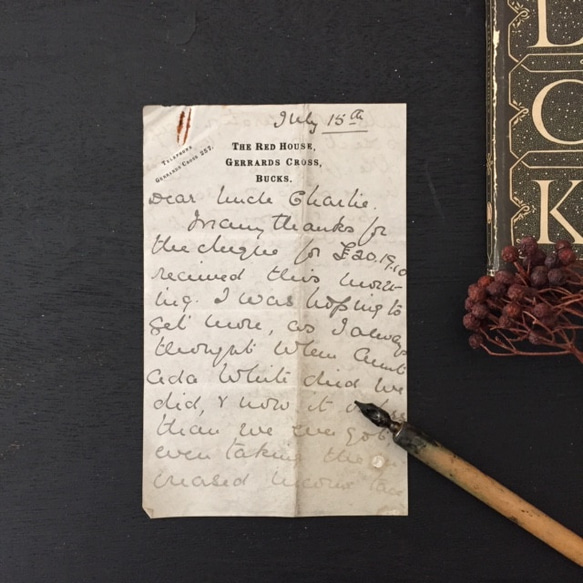 July 15th
TELEPHONE
GERRARDS CROSS 257.
THE RED HOUSE,
GERRARDS CROSS,
BUCKS.
Dear Uncle Charlie.
Many thanks for
the cheque for £20.19.10
received this morn-
ing. I was hoping to
get more, as I always
thought when Aunt
Ada White died we
did, & now it
than we ever got
even taking the in
creased income tax
L
C
K